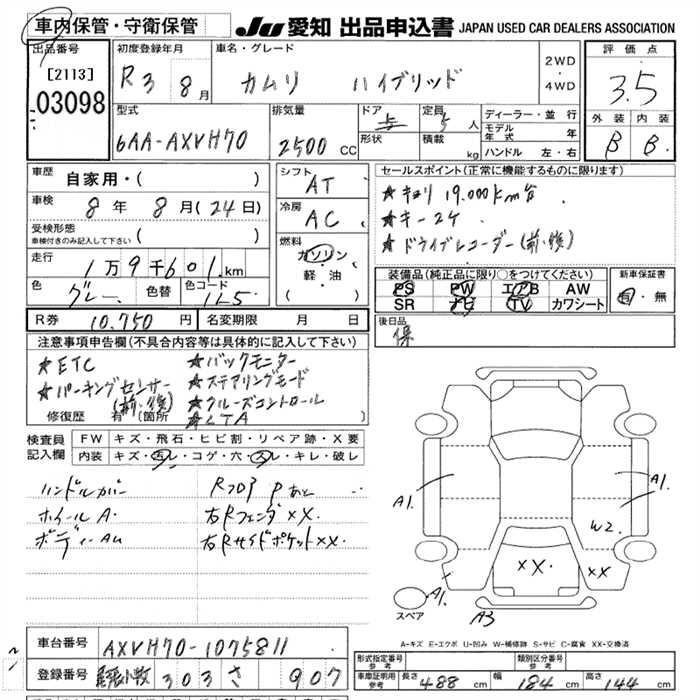 車内保管・守衛保管 JU 愛知 出品申込書 JAPAN USED CAR DEALERS ASSOCIATION
出品番号
[2113]
03098
初度登録年月
R3 8月
車名・グレード
カムリ ハイブリッド
2WD
4WD
評価点
3.5
外装 内装
B B
型式
6AA-AXVH70
排気量
2500 CC
ドア
形状
定員
5人
積載
kg
ディーラー・並行
モデル年式 年
ハンドル 左・右
車歴
自家用・( )
車検
8年 8月(24日)
受検形態
車検付きのみ記入して下さい ( )
走行
1万9千601km
色 グレー 色替 色コード 1L5
シフト
AT
冷房
AC
燃料
ガソリン
軽・油
( )
セールスポイント(正常に機能するものに限ります)
★キョリ 19.000km台
★キー2ケ
★ドライブレコーダー(前・後)
装備品(純正品に限り○をつけてください)
PS PW エアB AW
SR ナビ TV カワシート
新車保証書
有・無
R券 10.750円 名変期限 月 日
後日品
保
注意事項申告欄(不具合内容等は具体的に記入して下さい)
★ETC
★パーキングセンサー
(前・後)
★バックモニター
★ステアリングモード
★クルーズコントロール
★LTA
修復歴 有(箇所 )
検査員
記入欄
FW キズ・飛石・ヒビ割・リペア跡・X要
内装 キズ・汚レ・コゲ・穴・スレ・キレ・破レ
ハンドルカバー
ホイールA.
ボディーAU
RフロアPあと
右Rフェンダ××.
右Rサイドポケット××.
A1.
A1.
W2.
××.
××
A1.
A3
スペア
A-キズ E-エクボ U-凹み W-補修跡 S-サビ C-腐食 XX-交換済
車台番号 AXVH70-1075811
登録番号 303 さ 907
形式指定番号
参考
類別区分番号
参考
車庫証明用
参考
長さ 488 cm 幅 184 cm 高さ 144 cm